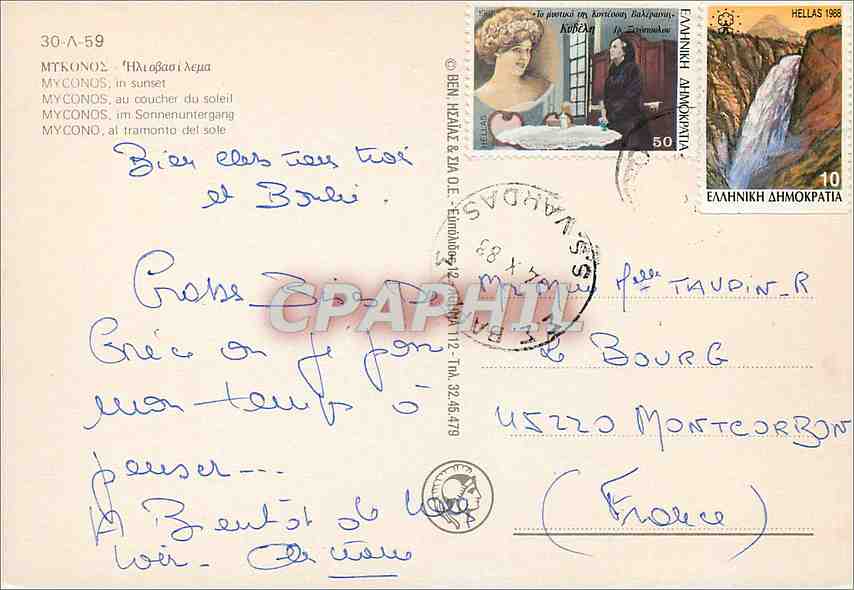 30-Λ-59
ΜΥΚΟΝΟΣ - Ἡλιοβασίλεμα
MYCONOS, in sunset
MYCONOS, au coucher du soleil
MYCONOS, im Sonnenuntergang
MYCONO, al tramonto del sole
et
Grosse Bises de
Grèce où je
mon temps à
penser ---
A Bientôt de
voir.
© BEN. ΗΣΑΪΑΣ & ΣΙΑ Ο.Ε. - Εὐπόλιδος 12 ΑΘΗΝΑ 112 - Τηλ. 32.45.479
1988
«Το μυστικό της Κοντέσσας Βαλέραινας»
Κυβέλη Γρ. Ξενόπουλου
ΕΛΛΗΝΙΚΗ ΔΗΜΟΚΡΑΤΙΑ
HELLAS
50
HELLAS 1988
10
ΕΛΛΗΝΙΚΗ ΔΗΜΟΚΡΑΤΙΑ
X 83
CPAPHIL
Melle TAUPIN-R
Le BOURG
45220 MONTCORBON
(France)